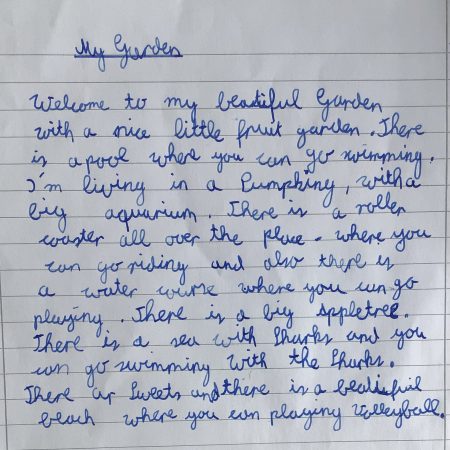 My Garden
Welcome to my beautiful Garden
with a nice little fruit garden. There
is a pool where you can go swimming.
I'm living in a Pumphing, with a
big aquarium. There is a roller
coaster all over the place. where you
can go riding and also there is
a water course where you can go
playing. There is a big Appletree.
There is a sea with Sharks and you
can go swimming with the Sharks.
There ar Sweets and there is a beatifuil
beach where you can playing Volleyball.